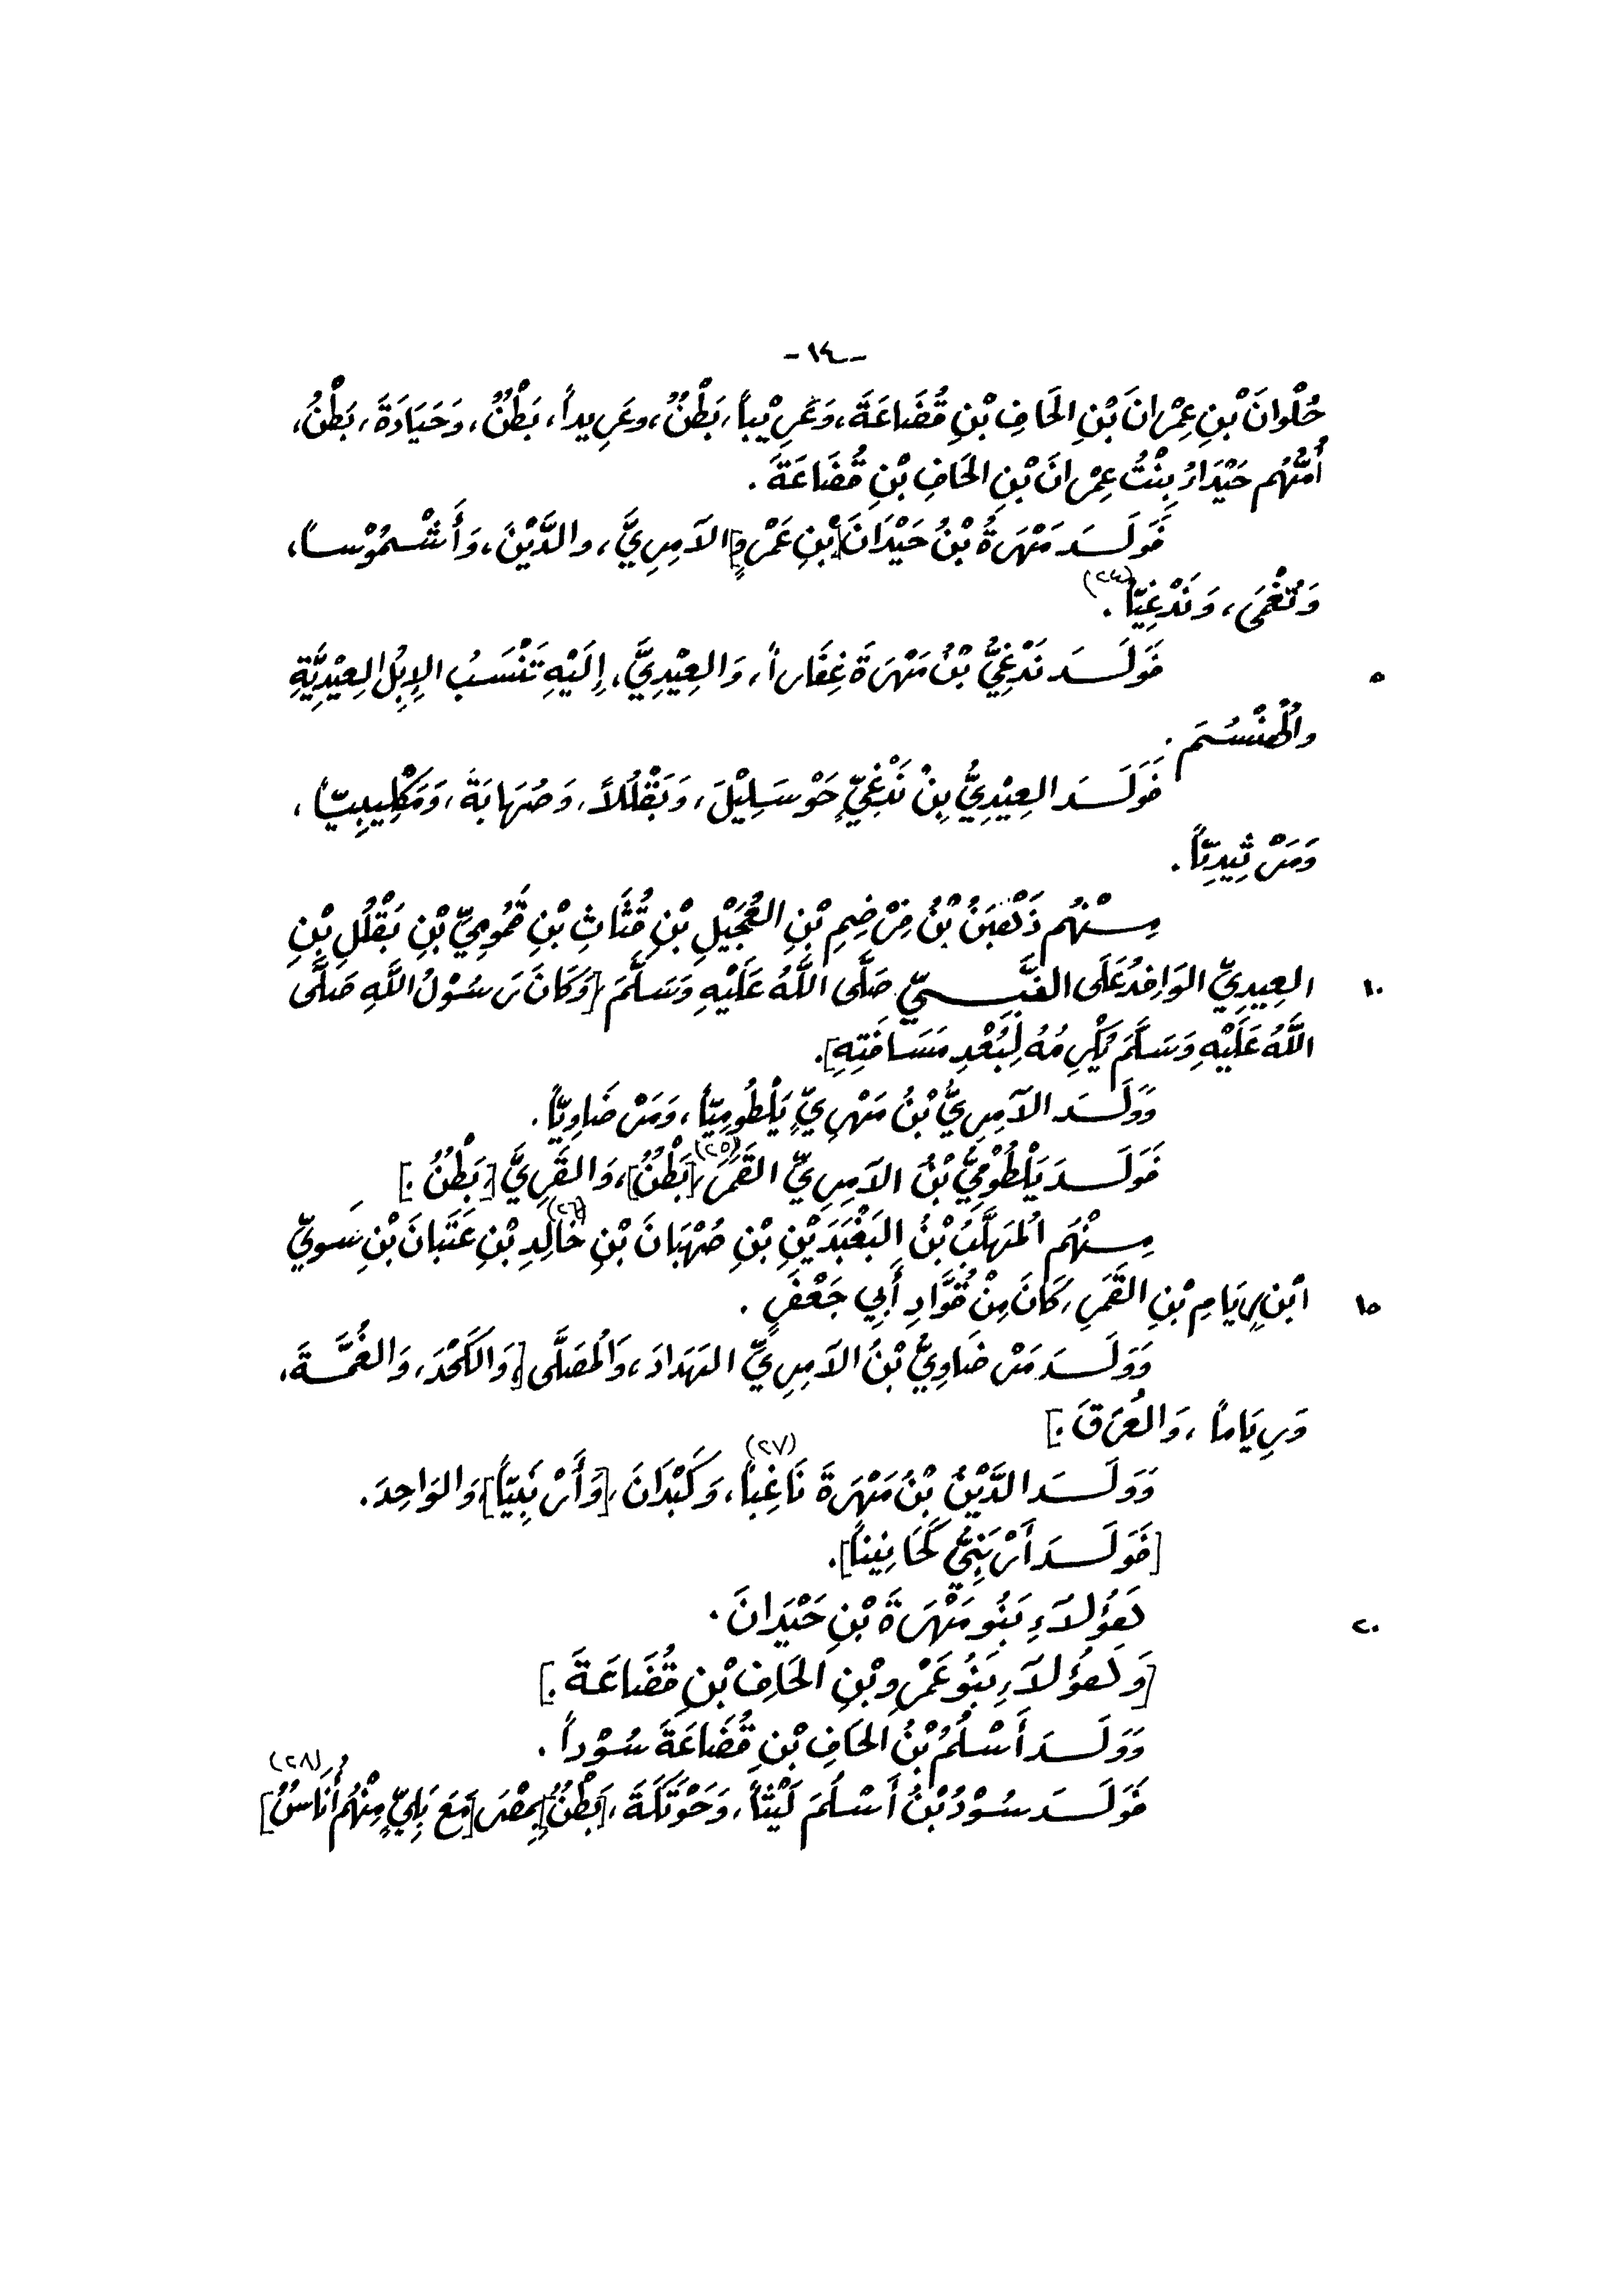 -١٤-
حُلْوانَ بْنِ عِمْرانَ بْنِ الحَافِ بْنِ قُضَاعَةَ، وَعَرِيْباً، بَطْنٌ، وعَرِيداً، بَطْنٌ، وَحَيَادَةَ، بَطْنُ،
أُمُّهُم حَيْدَارُ بِنْتُ عِمْرانَ بْنِ الحَافِ بْنِ قُضَاعَةَ.
فَوَلَدَ مَهْرَةُ بْنُ حَيْدَانَ [بْنِ عَمْرٍو] الآمِرِيَّ، والدَّيْنَ، وَأَشْمُوْساً،
وَتُغْمَى، وَنَدْغِيّاً (٢٤).
٥ فَوَلَدَ نَدْغِيُّ بْنُ مَهْرَةَ غِفَاراً، وَالعِيْدِيَّ، إِلَيْهِ تَنْسَبُ الإِبِلُ العِيْدِيَّةِ
والمُنْسُمَ.
فَوَلَدَ العِيْدِيُّ بِنْ نَدْغِيٍّ حَوْسَلِيْلَ، وَبَقْلُلاً، وَصُهَابَةَ، وَمَكْلِيبِيّاً،
وَمَرْثِيدِيّاً.
مِنْهُم ذَهْبَنُ بْنُ قِرْضِمِ بْنِ العُجَيْلِ بْنِ قُثَاثِ بْنِ قَمُومِيِّ بْنِ بَقْلُلِ بْنِ
١٠ العِيدِيِّ الوَافِدُ عَلَى النَّبِيِّ صَلَّى اللَّهُ عَلَيْهِ وَسَلَّمَ [وَكَانَ رَسُوْلُ اللَّهِ صَلَّى
اللَّهُ عَلَيْهِ وَسَلَّمَ يُكْرِمُهُ لِبُعْدِ مَسَافَتِهِ].
وَوَلَدَ الآمِرِيُّ بْنُ مَهْرِيٍّ يَلْطُومِيّاً، وَمَرْضَاوِيّاً.
فَوَلَدَ يَلْطُوْمِيُّ بْنُ الآمِرِيِّ القَمَرَ (٢٥)، [بَطْنٌ]، وَالقَرِيَّ [بَطْنُ.]
مِنْهُم المُهَلَّبُ بْنُ البَعْبَدَيْنِ بْنِ صُهْبَانَ بْنِ خَالِدِ (٢٦) بْنِ عَتَبانَ بْنِ سَويِّ
١٥ ابْنِ رِيَامِ بْنِ القَمَرِ، كَانَ مِنْ قُوَّادِ أَبِي جَعْفَرٍ.
وَوَلَدَ مَرْضَاوِيُّ بْنُ الآمِرِيِّ الهَدَادَ، وَالمُصَلَّى [، وَالكَحْدَ، وَالغُمَّةَ،
وَرِيَاماً، وَالعُرَقَ.]
وَوَلَدَ الدَّيْنُ بْنُ مَهْرَةَ نَاغِباً (٢٧)، وَكَبْدَانَ، [وَأَرْنَبِيّاً]، وَالوَاحِدَ.
[فَوَلَدَ أَرْنَبِيُّ كَحَانِيناً].
٢٠ هَؤُلاَءِ بَنُو مَهْرَةَ بْنِ حَيْدَانَ.
[وَهَؤُلاَءِ بَنُو عَمْرِو بْنِ الحَافِ بْنِ قُضَاعَةَ.]
وَوَلَدَ أَسْلُمُ بْنُ الحَافِ بْنِ قُضَاعَةَ سُوْداً.
فَوَلَدَ سُوْدُ بْنُ أَسْلُمَ لَيْثاً، وَحَوْتَكَةَ، [بَطْنٌ] بِمِصْرَ [مَعَ بَلِيٍّ مِنْهُم أُنَاسٌ] (٢٨)